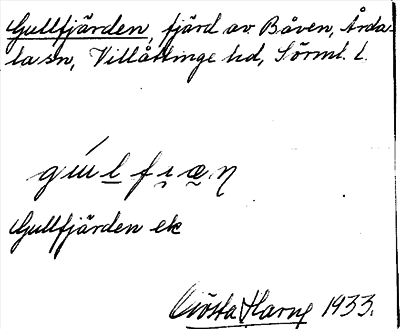 Gullfjärden, fjärd av Båven, Årda-
la sn, Villåttinge hd, Sörml. l.
Gullfjärden ek
Gösta Harng 1933.